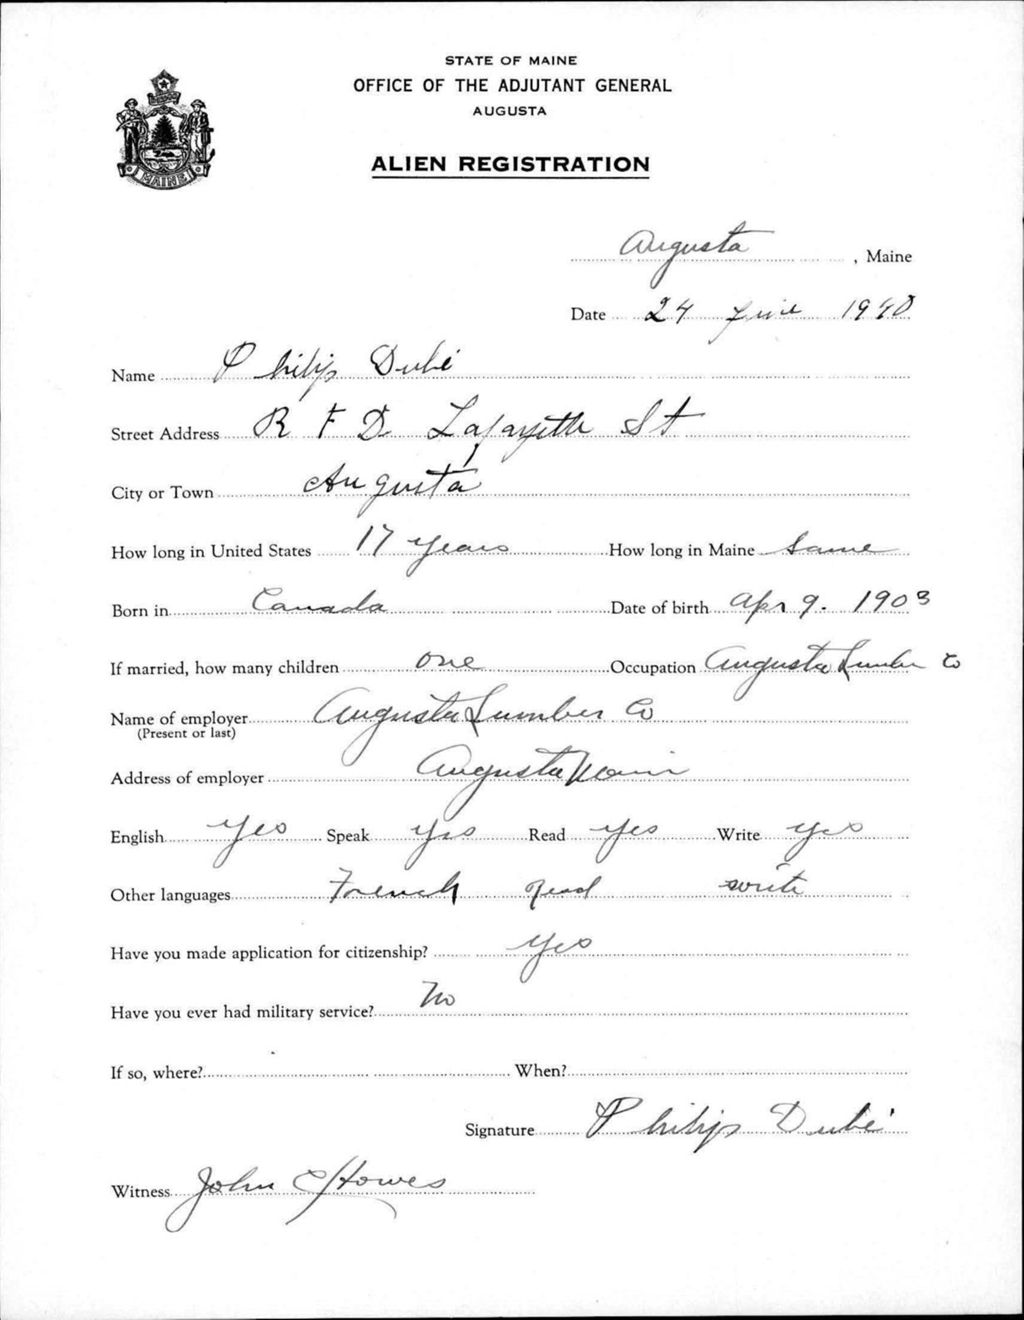 STATE OF MAINE
OFFICE OF THE ADJUTANT GENERAL
AUGUSTA
ALIEN REGISTRATION
MAINE
Augusta, Maine
Date 24 June 1940
Name Philip Dubé
Street Address R F D Lafayette St
City or Town Augusta
How long in United States 17 years How long in Maine Same
Born in Canada Date of birth Apr 9. 1903
If married, how many children one Occupation Augusta Lumber Co
Name of employer Augusta Lumber Co
(Present or last)
Address of employer Augusta Maine
English Yes Speak yes Read yes Write yes
Other languages French Read write
Have you made application for citizenship? Yes
Have you ever had military service? No
If so, where? When?
Signature Philip Dubé
Witness John C Howes